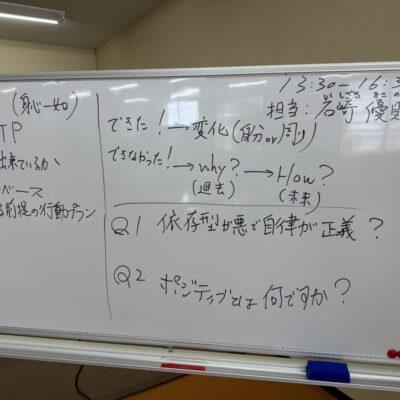 13:30-16:3
いしざき
担当:岩崎 優
(恥一如)
TP
出来ているか
ベース
る前提の行動プラン
できた!→変化(自分or周り)
できなかった!→why?→How?
(過去) (未来)
Q1 依存型が悪で自律が正義?
Q2 ポジティブとは何ですか?